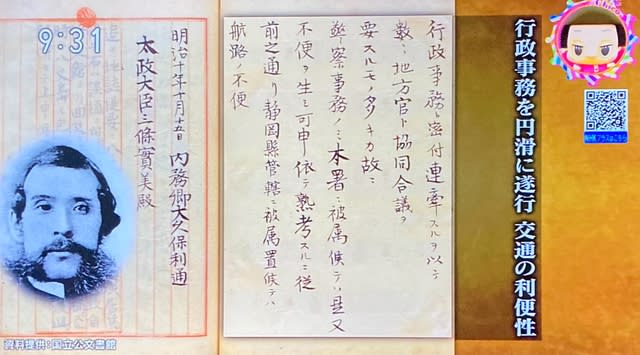 9:31
行政事務を円滑に遂行 交通の利便性
NHKプラスはこちら
行政事務ト 連牽スルヲ以テ
數々地方官ト協同合議ヲ
要スルモノ多キカ故ニ
警察事務ノミ本署ニ被属候テハ是又
不便ヲ生シ可申依テ熟考スルニ従
前之通リ静岡縣管轄ニ被属置候テハ
航路ノ不便
明治十年 内務卿大久保利通
太政大臣三條實美殿
資料提供:国立公文書館